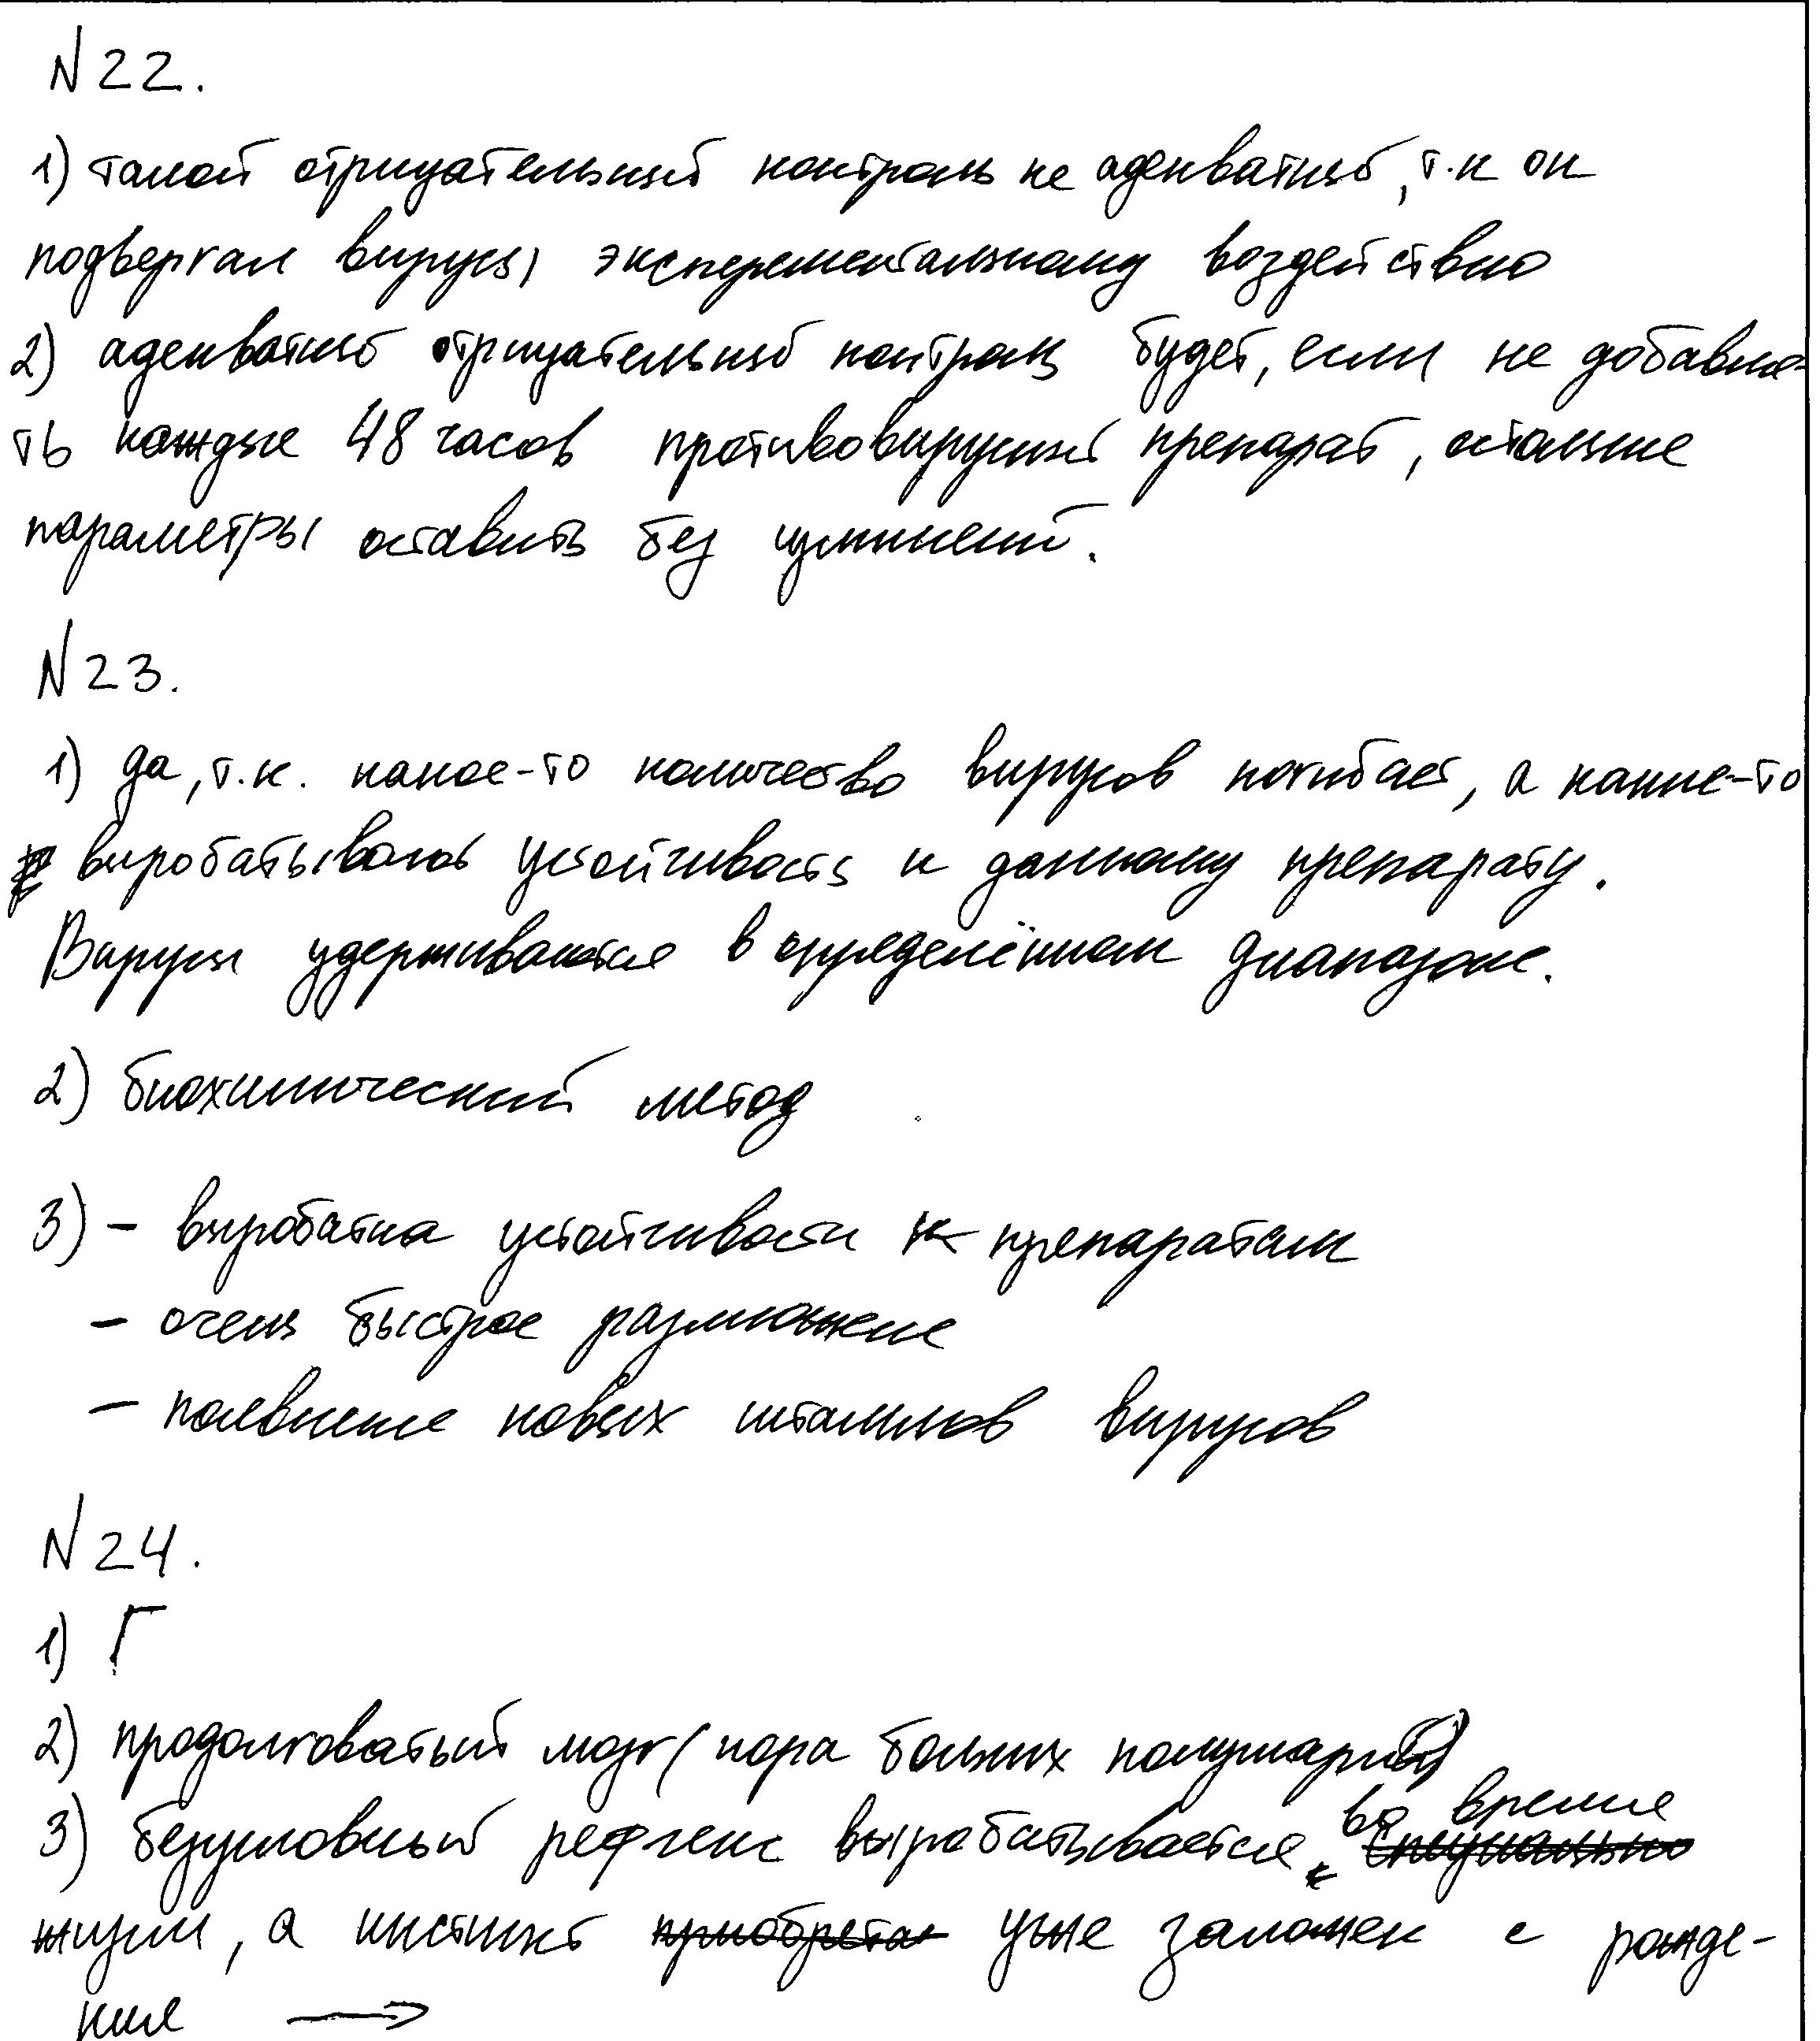 N 22.
1) такой отрицательный контроль не адекватный, т.к он
подвергал вирусы эксперементальному воздействию
2) адекватный отрицательный контроль будет, если не добавля-
ть каждые 48 часов противовирусный препарат, остальные
параметры оставить без изменений.
N 23.
1) да, т.к. какое-то количество вирусов погибает, а какие-то
вырабатывают устойчивость к данному препарату.
Вирусы удерживаются в определённом диапазоне.
2) биохимический метод
3) - выработка устойчивости к препаратам
- очень быстрое размножение
- появление новых штаммов вирусов
N 24.
1) Г
2) продолговатый мозг (кора больших полушарий)
3) безусловный рефлекс вырабатывается во время
жизни, а инстинкт уже заложен с рожде-
ния →